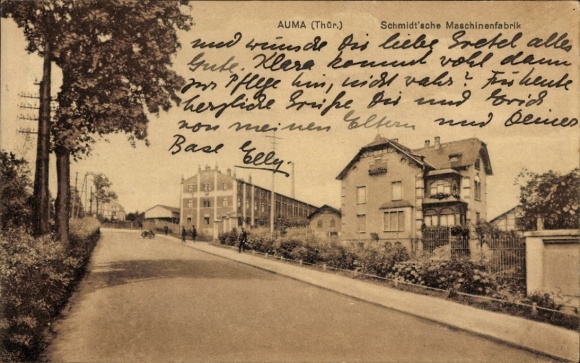 AUMA (Thür.) Schmidt'sche Maschinenfabrik
und wünsche Dir liebe Gretel alles
Gute. Klara kommt wohl dann
zur Pflege hin, nicht wahr? Für heute
herzliche Grüße Dir und Erich
von meinen Eltern und Deiner
Base Elly.